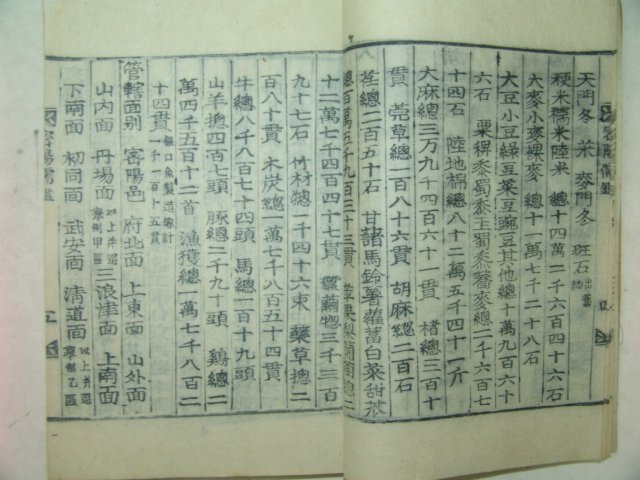 天門冬 茱 麥門冬 斑石 出舊誌
粳米糯米陸米 總十四萬二千六百四十六石
大麥小麥裸麥 總十一萬七千二十八石
大豆小豆綠豆菜豆豌豆其他總十萬九百六十
六石 粟稗黍蜀黍玉蜀黍蕎麥總二千六百七
十四石 陸地棉總八十二萬五千四十一斤
大麻總三万九千四百六十一貫 楮總三百十
貫 莞草總一百八十六貫 胡麻總二百石
荏總二百五十石 甘藷馬鈴薯蘿蔔白菜甜苽
總百萬三千九百二十三貫
十二萬七千四百四十七貫 蠶繭總三千三百
九十七石 竹材總一千四十六束 藥草總二
百八十貫 木炭總一萬七千八百五十四貫
牛總八千八百七十四頭 馬總一百十九頭
山羊總四百七頭 豚總二千九十頭 鷄總二
萬四千五百十二首 漁獲總一萬七千八百二
十四貫 銀口魚製造總計一千一百十五貫
管轄面別 密陽邑 府北面 上東面 山外面
山內面 丹場面 以上并選擧制甲區 三浪津面 上南面
下南面 初同面 武安面 清道面 以上并選擧制乙區